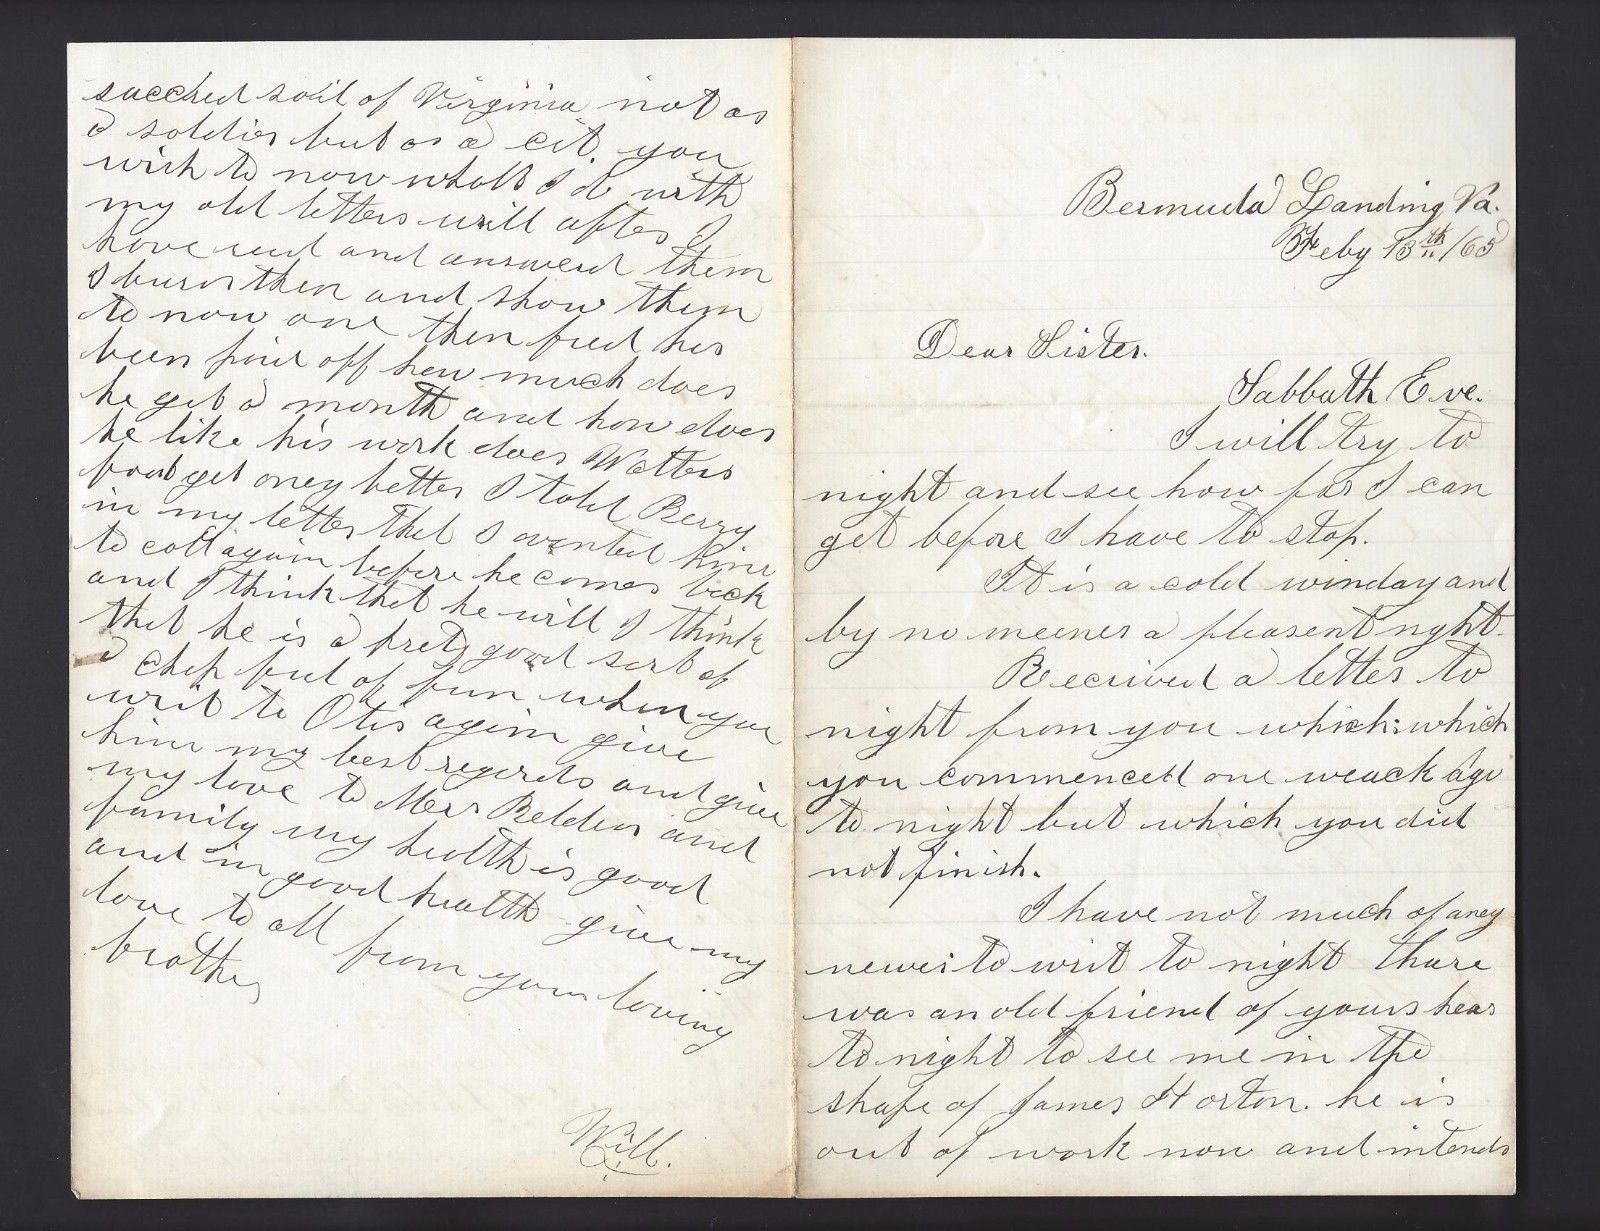 Bermuda Landing Va.
Feby 13th /65
Dear Sister.
Sabbath Eve.
I will try to
night and see how far I can
get before I have to stop.
It is a cold winday and
by no meenes a pleasent night.
Received a letter to
night from you which: which
you commenced one weack ago
to night but which you did
not finish.
I have not much of aney
newes to writ to night thare
was an old friend of yours hear
to night to see me in the
shape of James Horton. he is
out of work now and intends
saccred soil of Virginia not as
a soldier but as a cit. you
wish to now whatt I do with
my old letters will after I
have red and answered them
I burn them and show them
to now one then fred has
been paid off how much does
he get a month and how does
he like his work does Watters
foot get oney better I told Berry
in my letter that I wanted him
to call again before he comes back
and I think that he will I think
that he is a prety good sort of
a chap ful of fun when you
writ to Otis again give
him my best regards and give
my love to Mrs Belden and
family my health is good
and in good health give my
love to all from your loving
brother
Will.